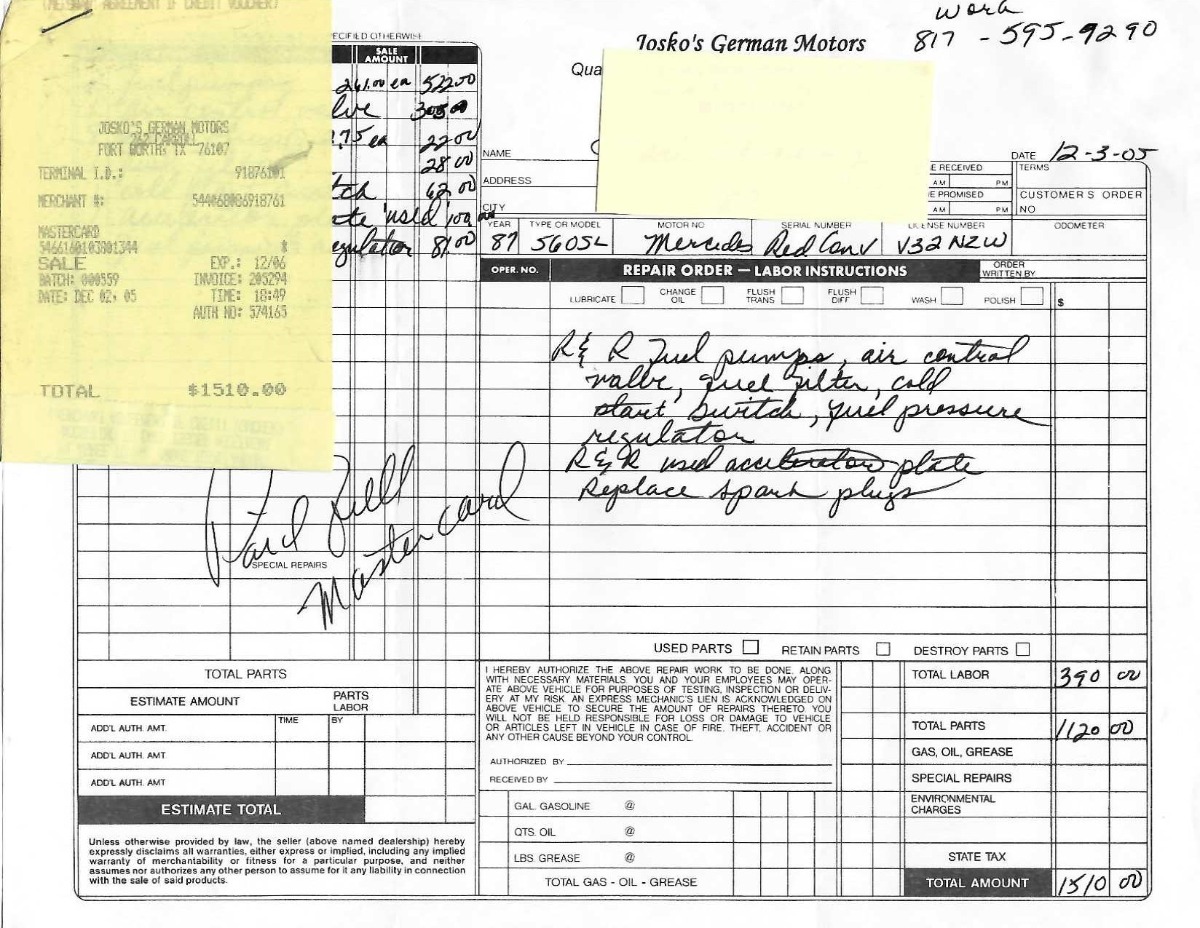 (MERCHANT AGREEMENT IF CREDIT VOUCHER)
JOSKO'S GERMAN MOTORS
FORT WORTH, TX 76107
TERMINAL I.D.: 91876101
MERCHANT #:
MASTERCARD
SALE EXP.: 12/06
BATCH: 000559 INVOICE: 203294
DATE: DEC 02, 05 TIME: 18:49
AUTH NO: 574165
TOTAL $1510.00
SPECIFIED OTHERWISE
SALE AMOUNT
261.00 ea 522 00
lve
.75 ea 22 00
28 00
tch 62.00
ate 'used' 100.00
egulator 81.00
Paid Bill
Mastercard
SPECIAL REPAIRS
TOTAL PARTS
ESTIMATE AMOUNT PARTS LABOR
ADD'L AUTH. AMT. TIME BY
ADD'L AUTH. AMT
ADD'L AUTH. AMT
ESTIMATE TOTAL
Unless otherwise provided by law, the seller (above named dealership) hereby
expressly disclaims all warranties, either express or implied, including any implied
warranty of merchantability or fitness for a particular purpose, and neither
assumes nor authorizes any other person to assume for it any liability in connection
with the sale of said products.
Work
817 - 595-9290
Josko's German Motors
Qua
NAME
ADDRESS
CITY
DATE 12-3-05
E RECEIVED TERMS
AM PM
E PROMISED CUSTOMER'S ORDER
AM PM NO
YEAR TYPE OR MODEL MOTOR NO SERIAL NUMBER LICENSE NUMBER ODOMETER
87 560SL Mercedes Red Conv V32 NZW
OPER. NO. REPAIR ORDER — LABOR INSTRUCTIONS ORDER WRITTEN BY
LUBRICATE CHANGE OIL FLUSH TRANS FLUSH DIFF WASH POLISH $
R & R Fuel pumps, air control
valve, fuel filter, cold
start switch, fuel pressure
regulator
R & R used accelerator plate
Replace spark plugs
USED PARTS RETAIN PARTS DESTROY PARTS
I HEREBY AUTHORIZE THE ABOVE REPAIR WORK TO BE DONE, ALONG
WITH NECESSARY MATERIALS. YOU AND YOUR EMPLOYEES MAY OPER-
ATE ABOVE VEHICLE FOR PURPOSES OF TESTING, INSPECTION OR DELIV-
ERY AT MY RISK. AN EXPRESS MECHANIC'S LIEN IS ACKNOWLEDGED ON
ABOVE VEHICLE TO SECURE THE AMOUNT OF REPAIRS THERETO. YOU
WILL NOT BE HELD RESPONSIBLE FOR LOSS OR DAMAGE TO VEHICLE
OR ARTICLES LEFT IN VEHICLE IN CASE OF FIRE, THEFT, ACCIDENT OR
ANY OTHER CAUSE BEYOND YOUR CONTROL.
AUTHORIZED BY
RECEIVED BY
GAL. GASOLINE @
QTS. OIL @
LBS. GREASE @
TOTAL GAS - OIL - GREASE
TOTAL LABOR 390 00
TOTAL PARTS 1120 00
GAS, OIL, GREASE
SPECIAL REPAIRS
ENVIRONMENTAL CHARGES
STATE TAX
TOTAL AMOUNT 1510 00